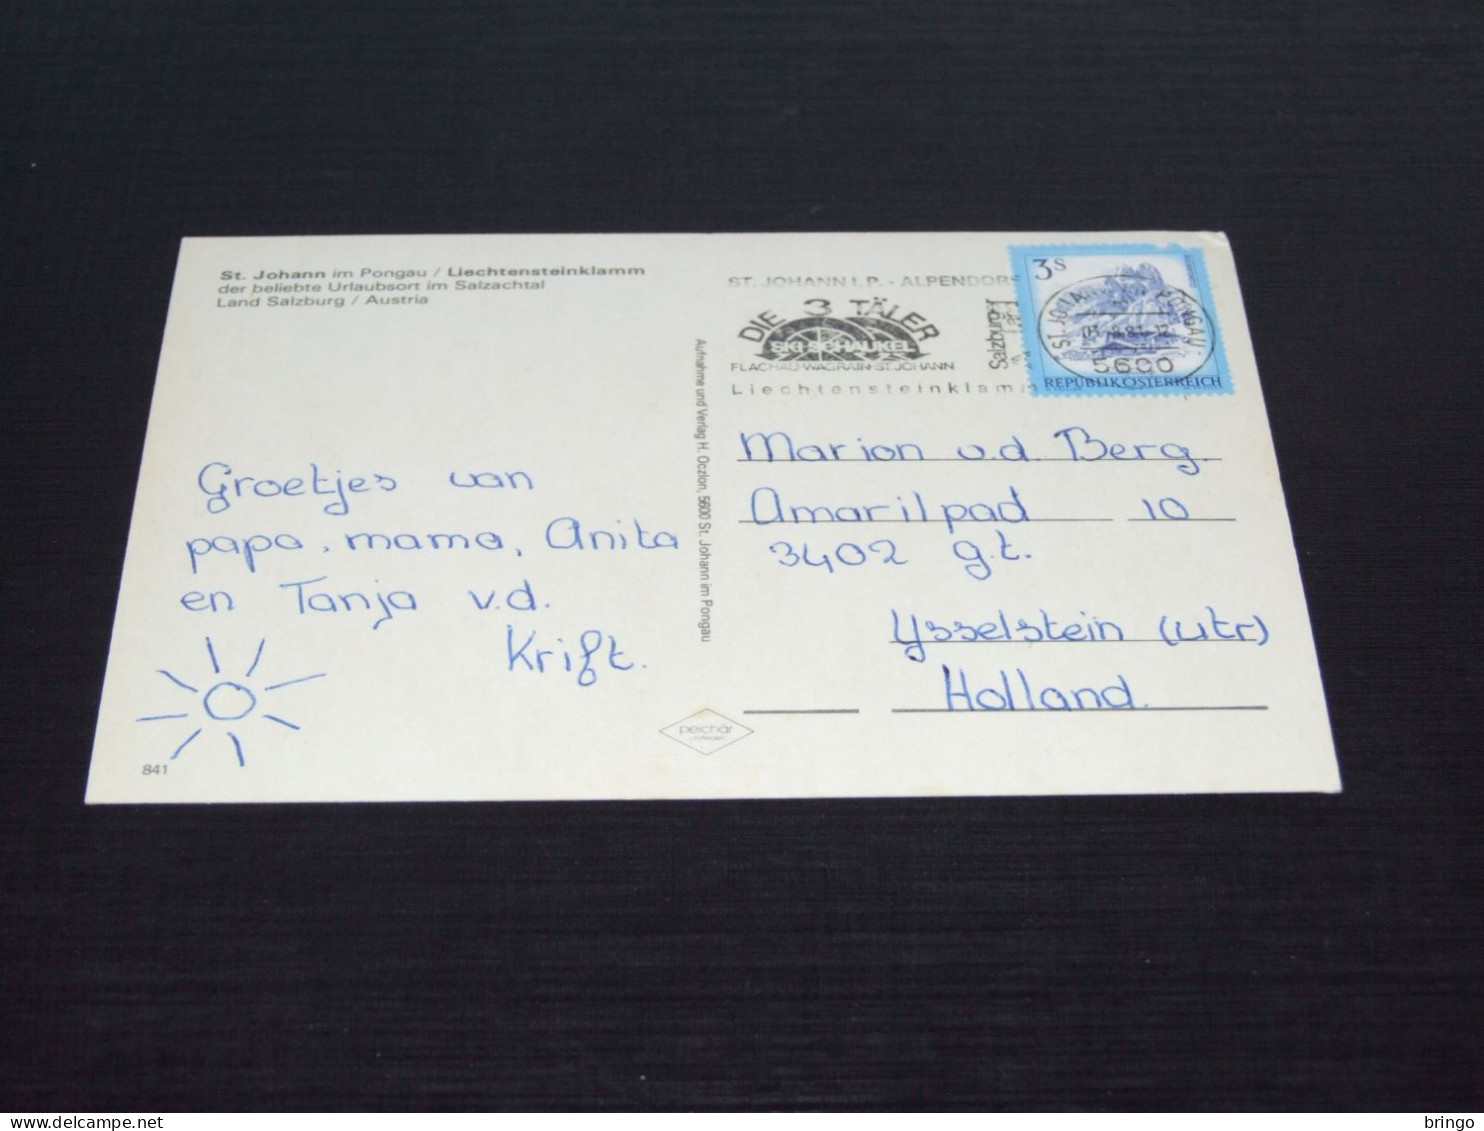 St. Johann im Pongau / Liechtensteinklamm
der beliebte Urlaubsort im Salzachtal
Land Salzburg / Austria
Groetjes van
papa, mama, Anita
en Tanja v.d.
Krift.
841
Aufnahme und Verlag H. Oczlon, 5600 St. Johann im Pongau
peichär
ST. JOHANN I. P. - ALPENDORF
DIE 3 TÄLER
SKI-SCHAUKEL
FLACHAU-WAGRAIN-ST.JOHANN
Liechtensteinklamm
Salzburger
3 S
PONGAU
5600
REPUBLIK ÖSTERREICH
Marion v.d. Berg.
Amarilpad 10
3402 g.t.
Ysselstein (utr)
Holland.
bringo